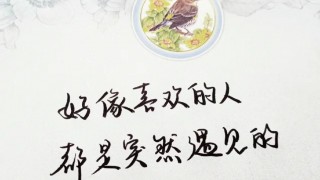 好像喜欢的人
都是突然遇见的